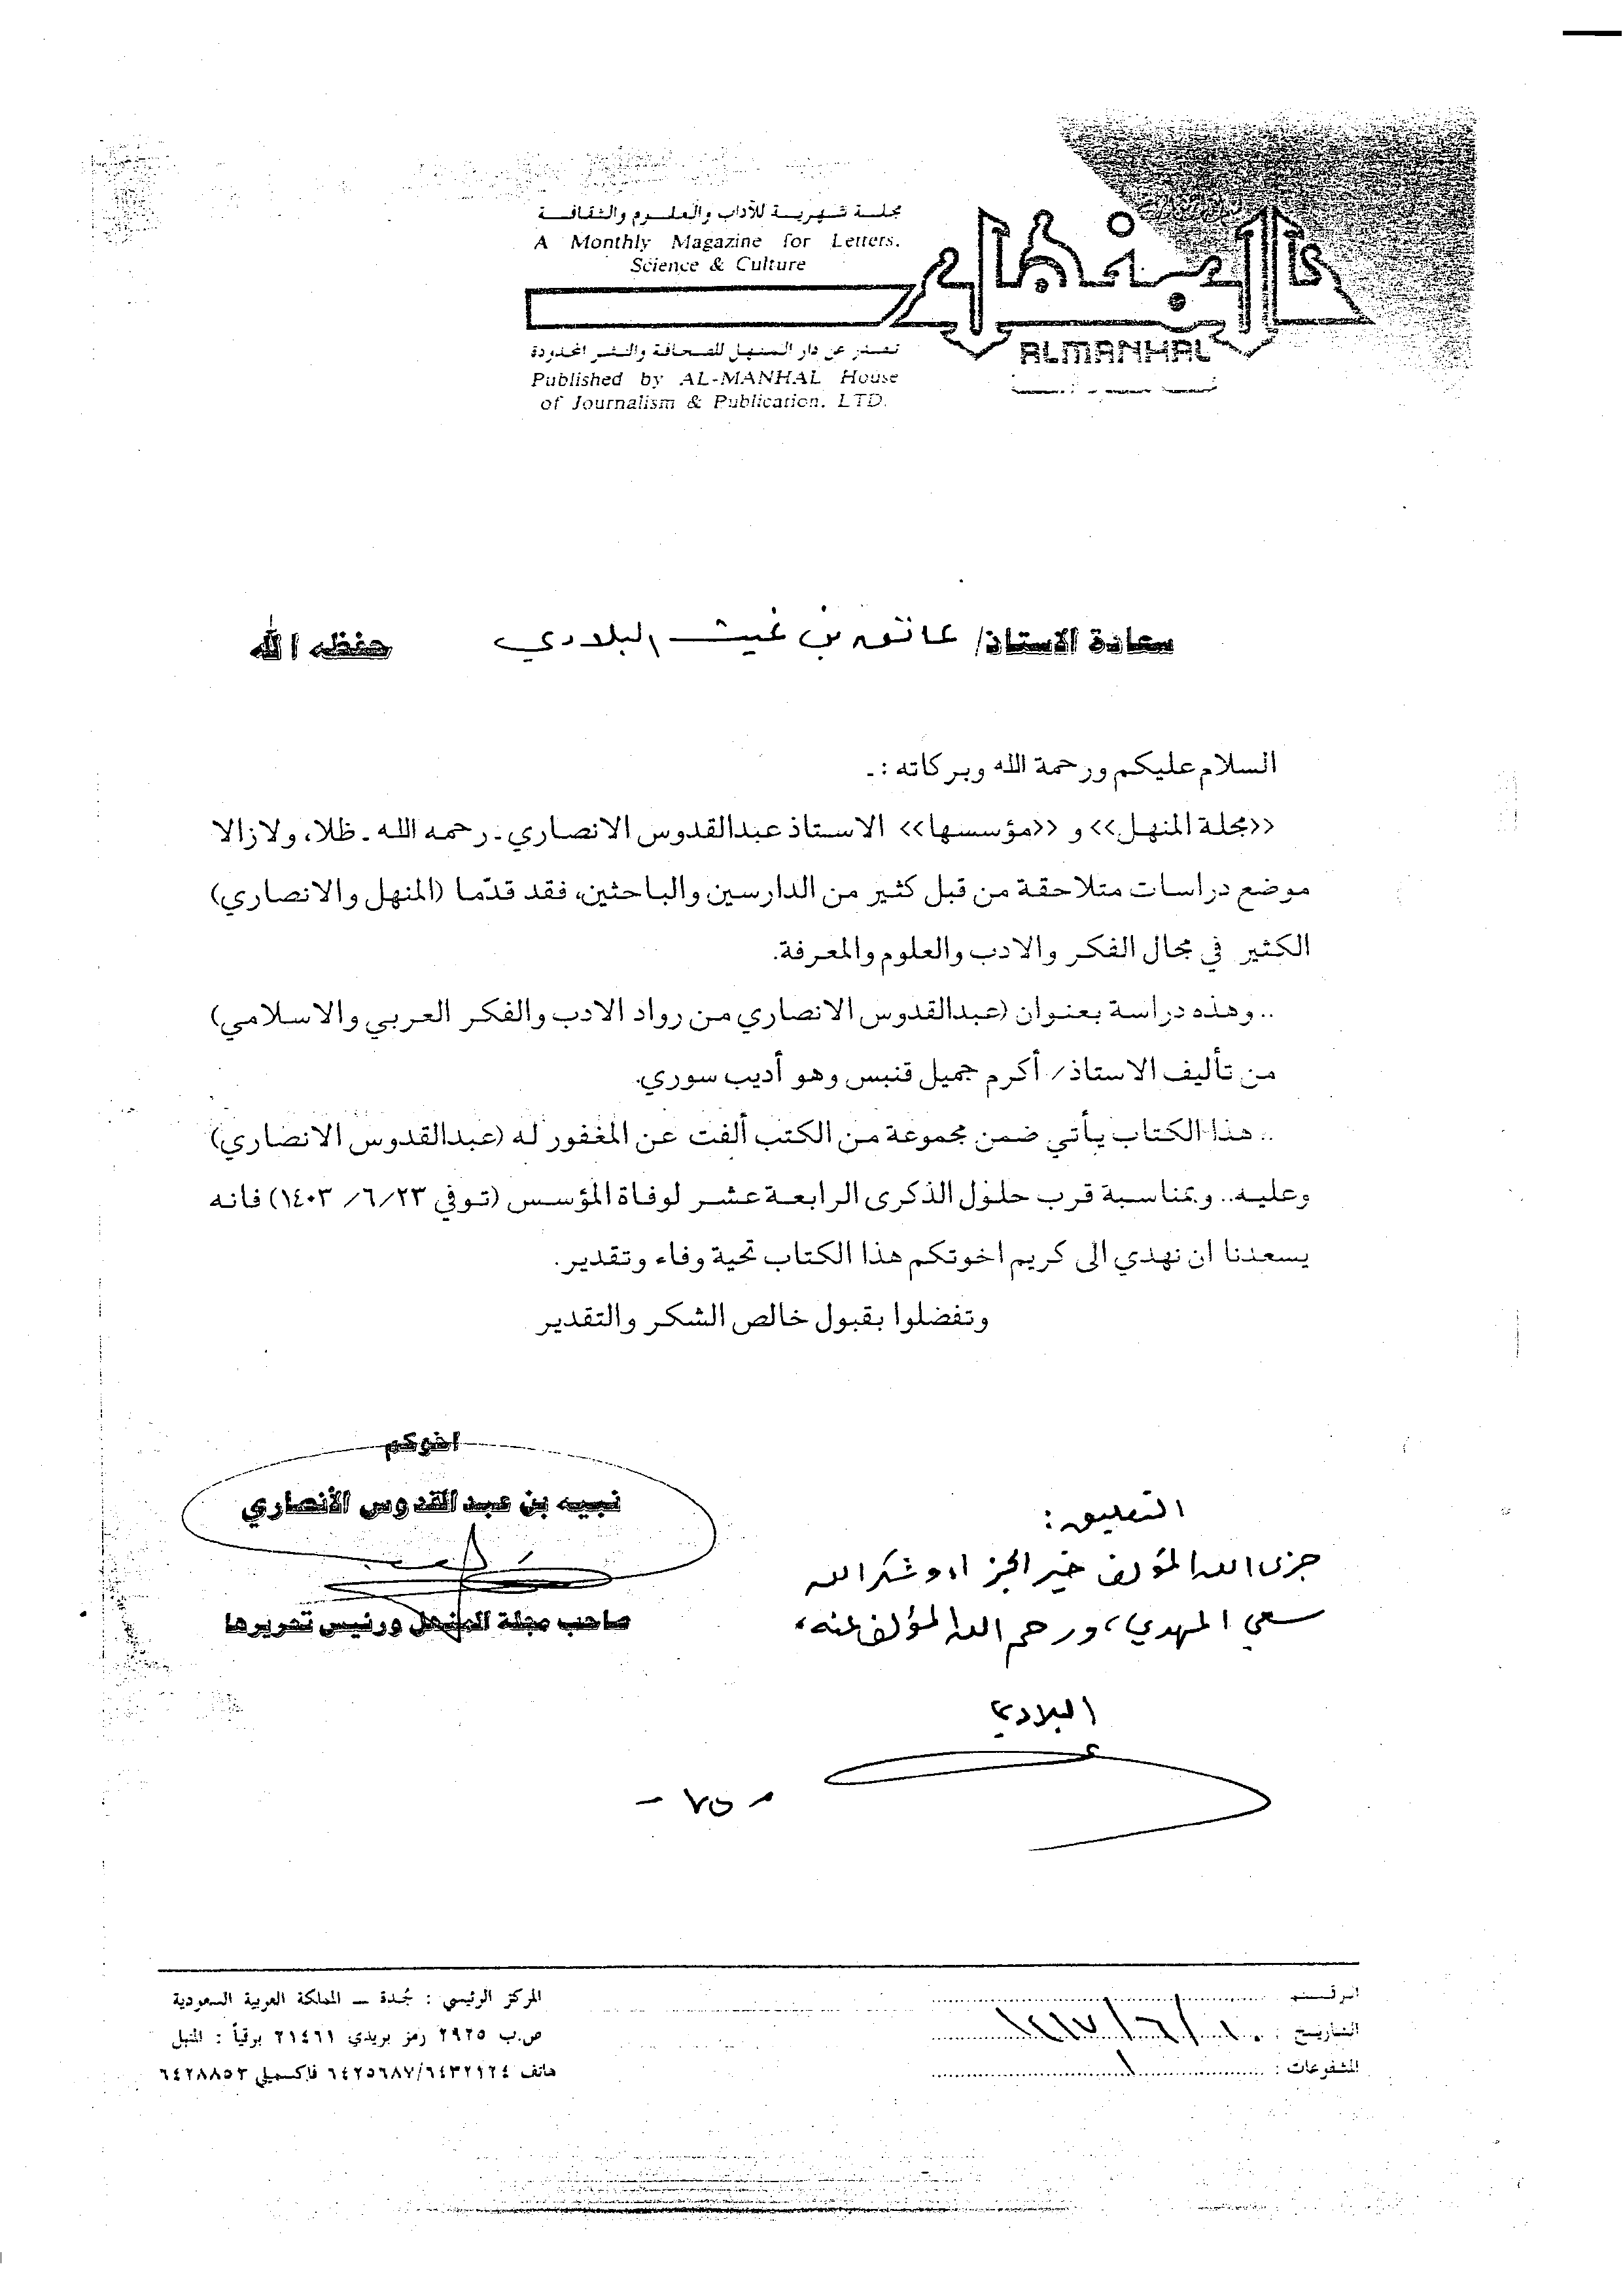 مجلة شهرية للآداب والعلوم والثقافة
A Monthly Magazine for Letters.
Science & Culture
المنهل
ALMANHAL
تصدر عن دار المنهل للصحافة والنشر المحدودة
Published by AL-MANHAL House
of Journalism & Publication. LTD.
سعادة الاستاذ/ عاتق بن غيث البلادي حفظه الله
السلام عليكم ورحمة الله وبركاته :ـ
<<مجلة المنهل>> و <<مؤسسها>> الاستاذ عبدالقدوس الانصاري ـ رحمه الله ـ ظلا، ولازالا
موضع دراسات متلاحقة من قبل كثير من الدارسين والباحثين، فقد قدّما (المنهل والانصاري)
الكثير في مجال الفكر والادب والعلوم والمعرفة.
.. وهذه دراسة بعنوان (عبدالقدوس الانصاري من رواد الادب والفكر العربي والاسلامي)
من تأليف الاستاذ/ أكرم جميل قنبس وهو أديب سوري.
.. هذا الكتاب يأتي ضمن مجموعة من الكتب ألفت عن المغفور له (عبدالقدوس الانصاري)
وعليه.. وبمناسبة قرب حلول الذكرى الرابعة عشر لوفاة المؤسس (توفي ٢٣/٦/ ١٤٠٣) فانه
يسعدنا ان نهدي الى كريم اخوتكم هذا الكتاب تحية وفاء وتقدير.
وتفضلوا بقبول خالص الشكر والتقدير
اخوكم
نبيه بن عبد القدوس الأنصاري
صاحب مجلة المنهل ورئيس تحريرها
التعليق :
جزى الله المؤلف خير الجزاء، وشكر الله
سعي المهدي، ورحم الله المؤلف عنه،
البلادي
- ٧٥ -
الرقم
التاريخ : ١٠/٦/١٤١٧
المشفوعات : ١
المركز الرئيسي : جُدة ــ المملكة العربية السعودية
ص.ب ٢٩٢٥ رمز بريدي ٢١٤٦١ برقياً : المنهل
هاتف ٦٤٣٢١٢٤/٦٤٢٥٦٨٧ فاكسميلي ٦٤٢٨٨٥٣